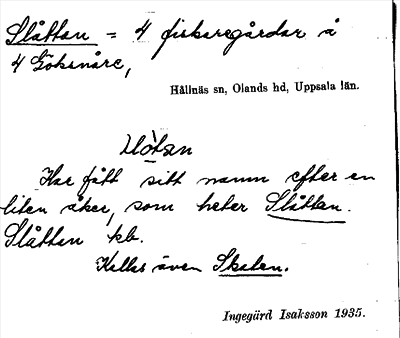 Slåttan = 4 fiskaregårdar å
4 Göksnåre,
Hållnäs sn, Olands hd, Uppsala län.
Har fått sitt namn efter en
liten åker, som heter Slåttan.
Slåttan kb.
Kallas även Skaten.
Ingegärd Isaksson 1935.